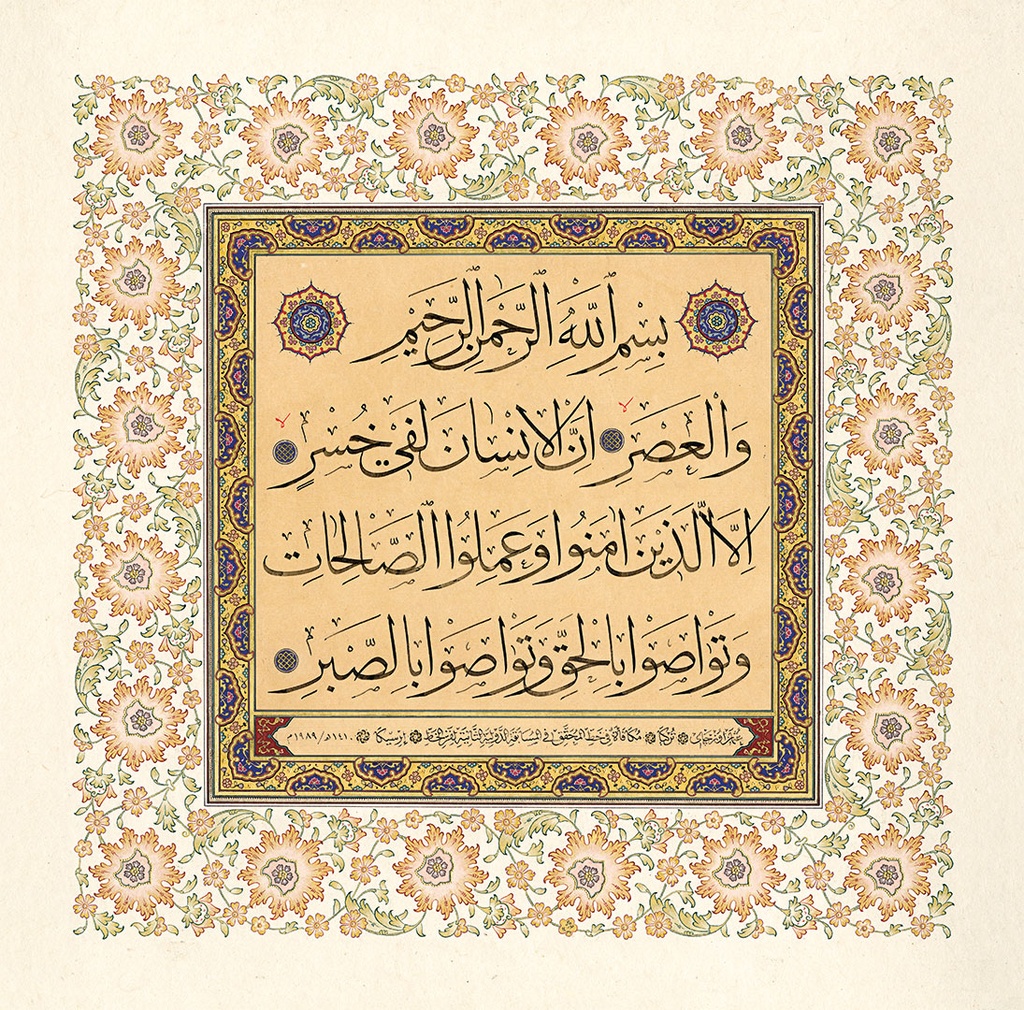 بِسْمِ اللَّهِ الرَّحْمٰنِ الرَّحِيمِ
وَالْعَصْرِ اِنَّ الْاِنْسَانَ لَفِي خُسْرٍ
اِلَّا الَّذِينَ اٰمَنُوا وَعَمِلُوا الصَّالِحَاتِ
وَتَوَاصَوْا بِالْحَقِّ وَتَوَاصَوْا بِالصَّبْرِ
تركيا مكافأة في خط المحقق في المسابقة الدولية الثانية لفن الخط ارسيكا ١٤١٠هـ/١٩٨٩م